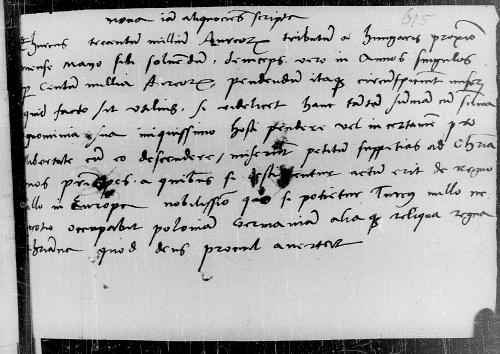 nova iam aliquociens scripta
615
Thurcus trecentum millium Aureorum tributum a Hungaris proximo
mense mayo sibi solvendum, deinceps vero in Annos singulos
centum millia Aureorum, pendendum itaque circumspiciunt
quid facto sit utilius, si videlicet hanc tantam summam cum summa
ignominia sua iniquissimo hosti pendere vel in certamen pro
libertate cum eo descendere, miserunt petitum suppetias ad Christia
nos principes a quibus si destituentur actum erit de Regno
illo in Europa nobilissimo quo si potietur Turcus nullo ne
gotio occupabit poloniam Germaniam aliaque reliqua regna
christiana quod deus procul avertat